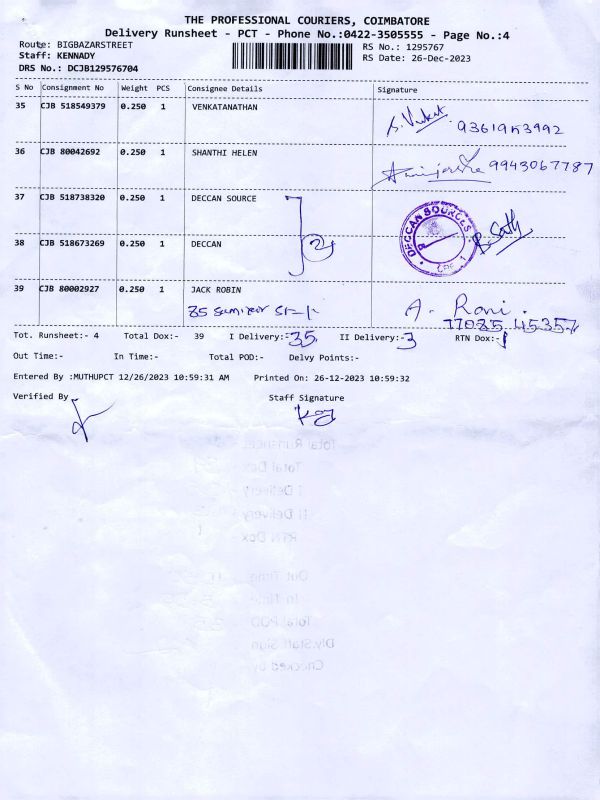 THE PROFESSIONAL COURIERS, COIMBATORE
Delivery Runsheet - PCT - Phone No.:0422-3505555 - Page No.:4
Route: BIGBAZARSTREET
RS No.: 1295767
Staff: KENNADY
RS Date: 26-Dec-2023
DRS No.: DCJB129576704
S No Consignment No Weight PCS Consignee Details Signature
35 CJB 518549379 0.250 1 VENKATANATHAN
S. Venkat 9361953992
36 CJB 80042692 0.250 1 SHANTHI HELEN
9943067787
37 CJB 518738320 0.250 1 DECCAN SOURCE
DECCAN SOURCES
38 CJB 518673269 0.250 1 DECCAN
2
39 CJB 80002927 0.250 1 JACK ROBIN
85
A. Rani.
77085 45357
Tot. Runsheet:- 4 Total Dox:- 39 I Delivery:-35 II Delivery:-3 RTN Dox:-1
Out Time:- In Time:- Total POD:- Delvy Points:-
Entered By :MUTHUPCT 12/26/2023 10:59:31 AM Printed On: 26-12-2023 10:59:32
Verified By Staff Signature
Total Runsheet
Total Dox
I Delivery
II Delivery
RTN Dox
Out Time
In Time
Total POD
Dly.Staff Sign
Checked by